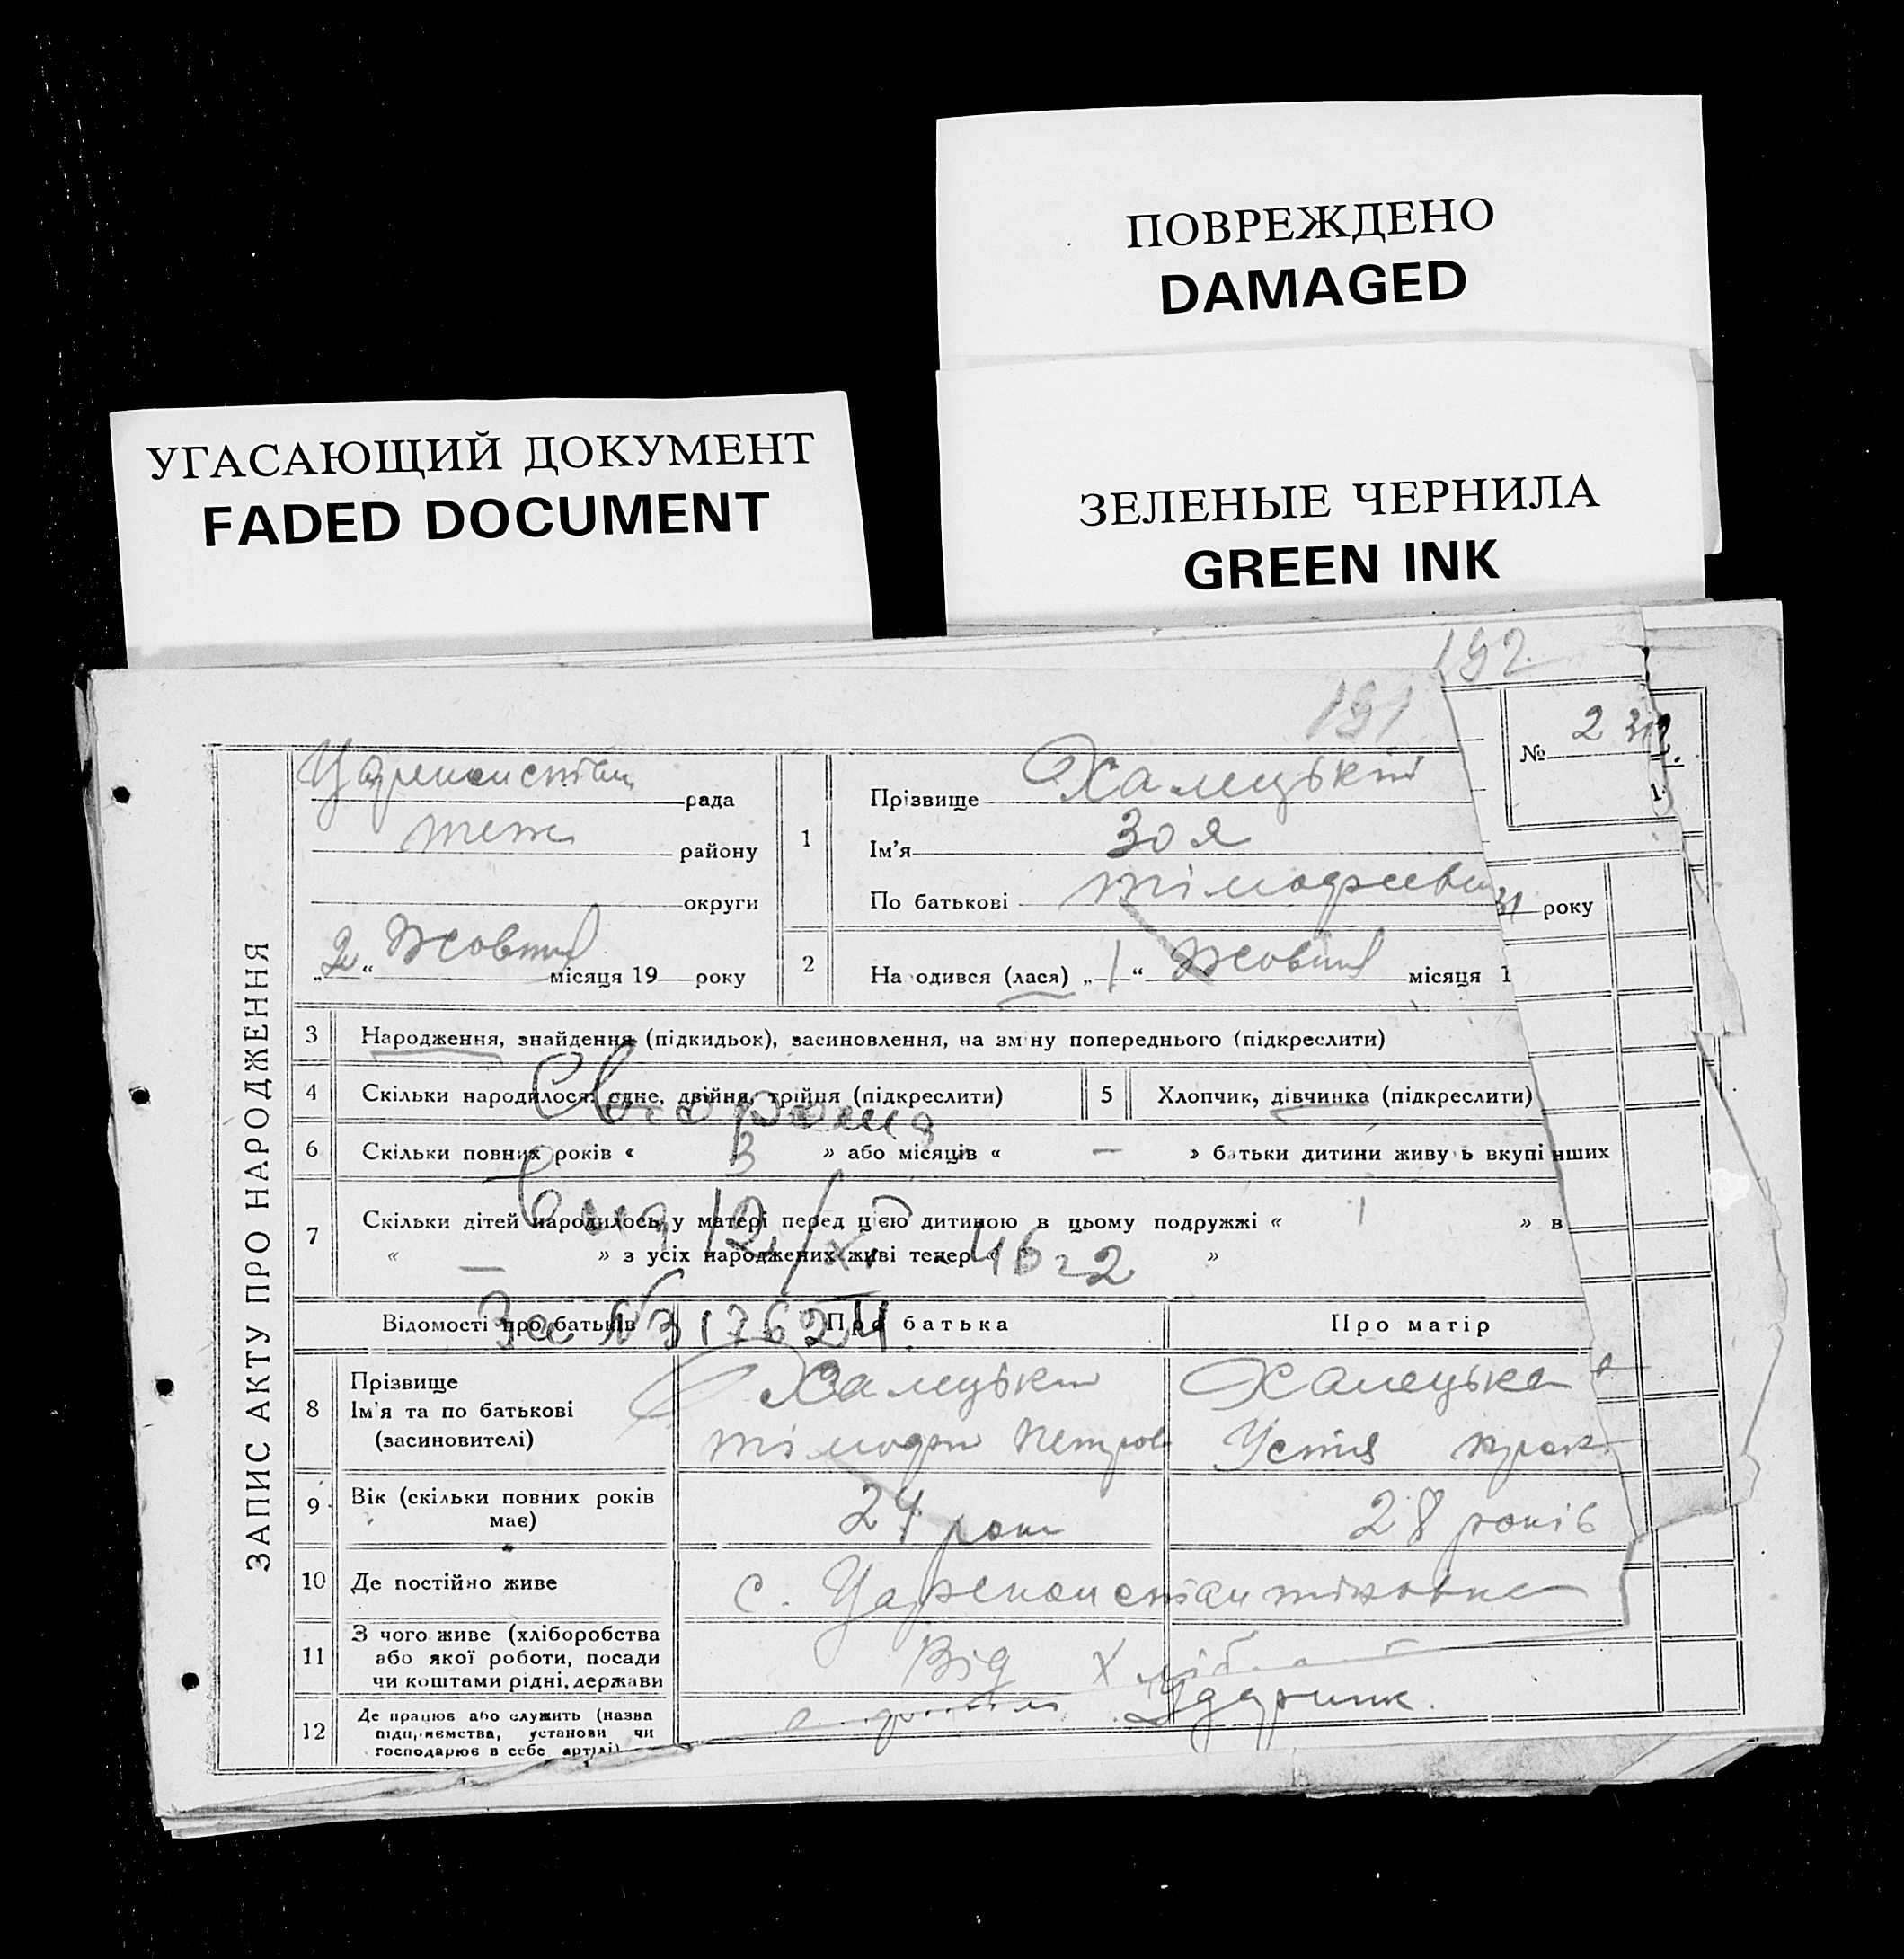 ПОВРЕЖДЕНО
DAMAGED
УГАСАЮЩИЙ ДОКУМЕНТ
FADED DOCUMENT
ЗЕЛЕНЫЕ ЧЕРНИЛА
GREEN INK
192.
191
№ 2
ЗАПИС АКТУ ПРО НАРОДЖЕННЯ
рада
теж району
округи
„2“ Жовтня місяця 19 року
1
Прізвище Халецький
Ім'я Зоя
По батькові
31 року
2 На одився (лася) „1“ Жовтня місяця 1
3 Народження, знайдення (підкидьок), засиновлення, на зм ну попереднього (підкреслити)
4 Скільки народилося: одне, двійня, трійня (підкреслити)
5 Хлопчик, дівчинка (підкреслити)
6 Скільки повних років « 3 » або місяців « — » батьки дитини живу ь вкупі нших
7 Скільки дітей народилось у матері перед цією дитиною в цьому подружжі « 1 » в
« — » з усіх народжених живі тепер « »
12/XI 46 г
За № 317624
Відомості про батьків
Про батька
Про матір
8 Прізвище
Ім'я та по батькові
(засиновителі)
Халецький
Петров
Халецька
Устя
9 Вік (скільки повних років
має)
24 роки
28 років
10 Де постійно живе
с. Цареконстантиновка
11 З чого живе (хліборобства
або якої роботи, посади
чи коштами рідні, держави
Від
12 Де працює або служить (назва
підприємства, установи чи
господарює в себе артілі)
Ударник.